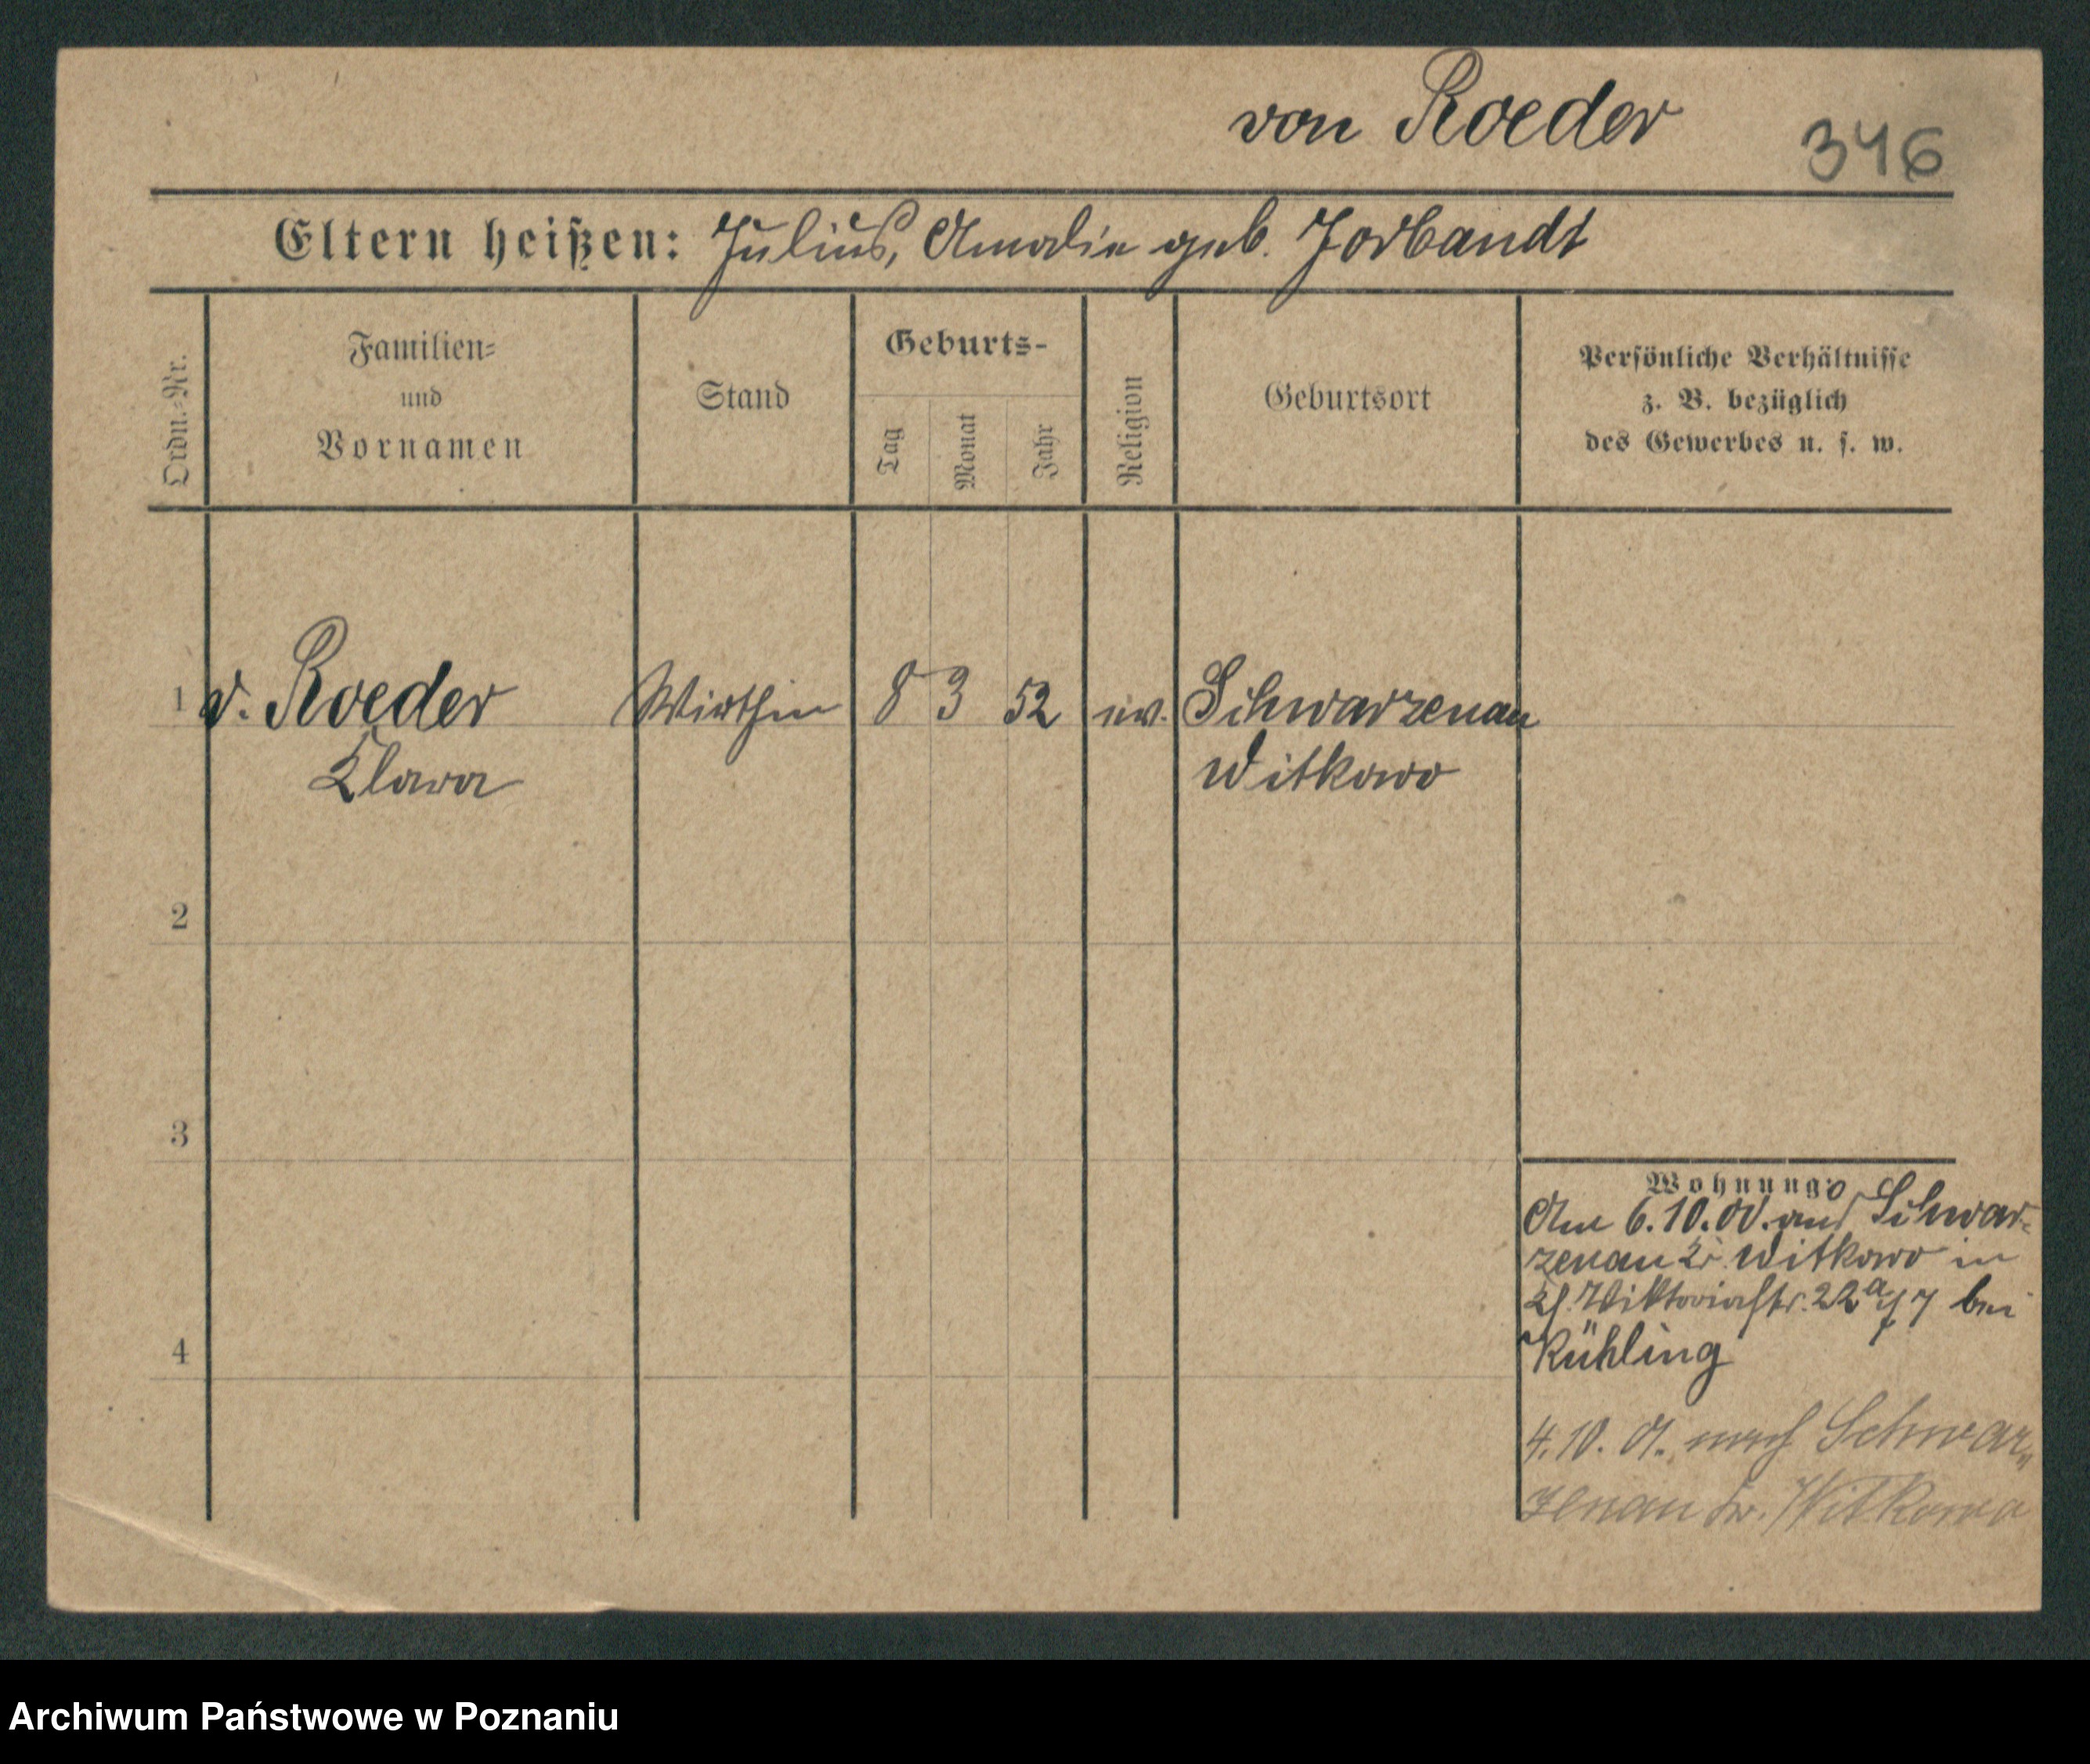 von Roeder
346
Eltern heißen: Julius, Amalie geb. Jorbandt
Ordn.-Nr.
Familien-
und
Vornamen
Stand
Geburts-
Tag
Monat
Jahr
Religion
Geburtsort
Persönliche Verhältnisse
z. B. bezüglich
des Gewerbes u. s. w.
1 v. Roeder Wirthin 8 3 52 ev. Schwarzenau
Klara Witkowo
2
3
4
Wohnung:
Am 6.10.00. aus Schwar-
zenau Kr. Witkowo in
Viktoriastr. 22a bei
Kühling
4.10.01. nach Schwar-
zenau Kr. Witkowo
Archiwum Państwowe w Poznaniu